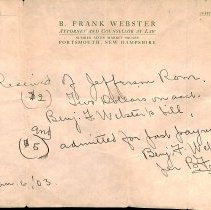 R. FRANK WEBSTER
ATTORNEY AND COUNSELLOR AT LAW
NUMBER SEVEN MARKET SQUARE
PORTSMOUTH, NEW HAMPSHIRE
Received of Jefferson Rowe
$2 Two Dollars on acct.
Benj. F Webster's bill,
and
$5 admitted for past payment
Benj. F. Web
Jan 6, '03. per R F